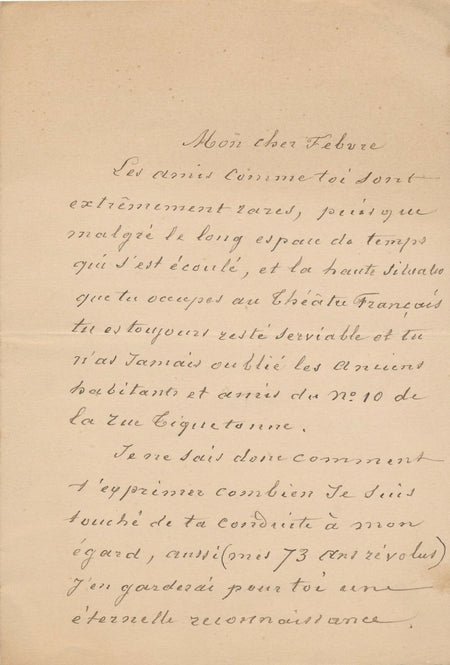 Mon cher Febvre
Les amis comme toi sont
extrêmement rares, puisque
malgré le long espace de temps
qui s'est écoulé, et la haute situatio
que tu occupes au Théâtre Français
tu es toujours resté serviable et tu
n'as Jamais oublié les Anciens
habitants et amis du No 10 de
la rue Tiquetonne.
Je ne sais donc comment
t'exprimer combien Je suis
touché de ta conduite à mon
égard, aussi (mes 73 Ans révolus)
J'en garderai pour toi une
éternelle reconnaissance.